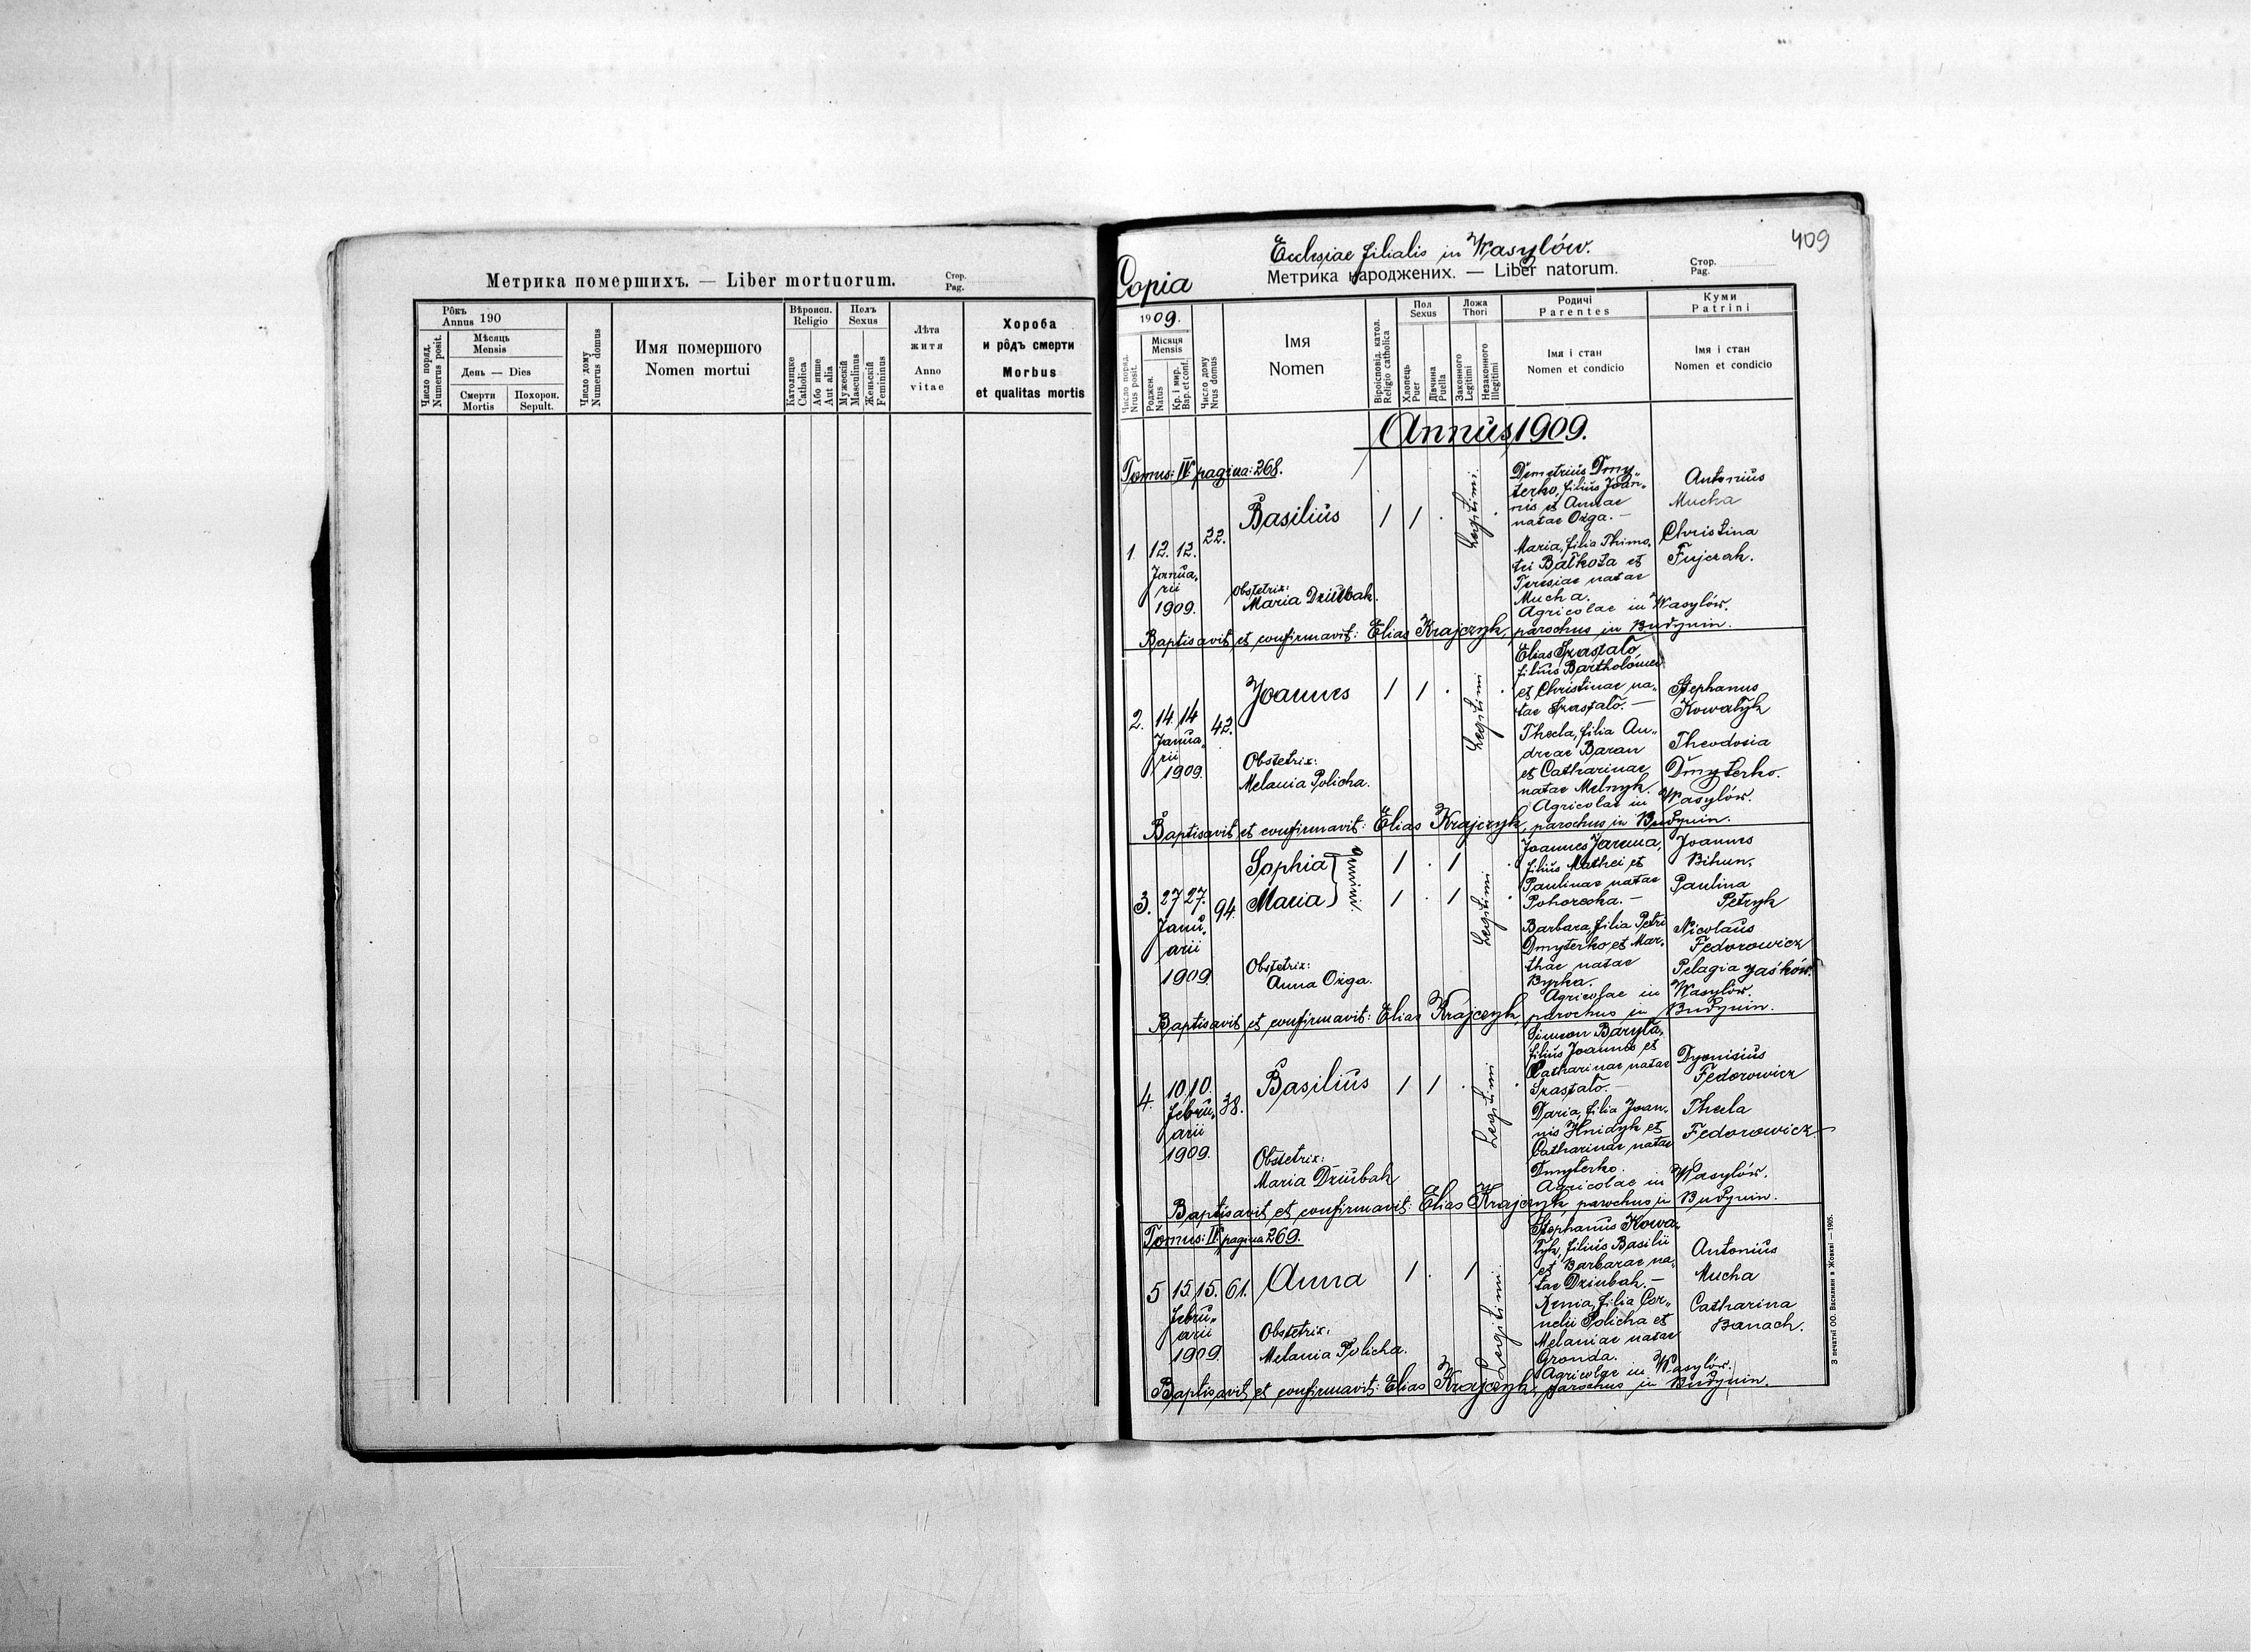 Метрика помершихъ. — Liber mortuorum.
Стор.
Pag.
Рôкъ
Annus 190
Число поряд.
Numerus posit.
Мѣсяць
Mensis
День — Dies
Смерти
Mortis
Похорон.
Sepult.
Число дому
Numerus domus
Имя помершого
Nomen mortui
Вѣроисп.
Religio
Католицке
Catholica
Або инше
Aut alia
Полъ
Sexus
Мужескій
Masculinus
Женьскій
Femininus
Лѣта
житя
Anno
vitae
Хороба
и рôдъ смерти
Morbus
et qualitas mortis
409
Ecclesiae filialis in Wasylów.
Copia
Метрика народжених. — Liber natorum.
Стор.
Pag.
1909.
Число поряд.
Nrus posit.
Місяця
Mensis
Роджен.
Natus
Кр. і мир.
Bap. et conf.
Число дому
Nrus domus
Імя
Nomen
Віроісповід. катол.
Religio catholica
Пол
Sexus
Хлопець
Puer
Дівчина
Puella
Ложа
Thori
Законного
Legitimi
Незаконного
Illegitimi
Родичі
Parentes
Імя і стан
Nomen et condicio
Куми
Patrini
Імя і стан
Nomen et condicio
Annus 1909.
Tomus: IV pagina: 268.
1 12. 12. 22.
Janua„
rii
1909.
Basilius 1 1 . Legitimi. .
Obstetrix:
Maria Dziubak.
Demetrius Dmy„
terko, filius Joan„
nis et Annae
natae Ożga. —
Maria, filia Thimo„
tei Bałkota et
Teresiae natae
Mucha.
Agricolae in Wasylów.
Antonius
Mucha
Christina
Fujczak.
Baptisavit et confirmavit: Elias Krajczyk, parochus in Budynin.
2. 14 14 42.
Janua„
rii
1909.
Joannes 1 1 . Legitimi .
Obstetrix:
Melania Policha.
Elias Szastało,
filius Bartholomei
et Christinae na„
tae Szastało. —
Thecla, filia An„
dreae Baran
et Catharinae
natae Melnyk.
Agricolae in Wasylów.
Stephanus
Kowałyk
Theodosia
Dmyterko.
Baptisavit et confirmavit: Elias Krajczyk, parochus in Budynin.
3. 27 27. 94.
Janu„
arii
1909.
Sophia 1 . 1 .
Maria 1 . 1 .
Gemini.
Legitimi
Obstetrix:
Anna Ożga.
Joannes Jarema,
filius Mathei et
Paulinae natae
Pohorecka. —
Barbara, filia Petri
Dmyterko et Mar„
thae natae
Byrka.
Agricolae in Wasylów.
Joannes
Bihun,
Paulina
Petryk
Nicolaus
Fedorowicz
Pelagia Jaśków.
Baptisavit et confirmavit: Elias Krajczyk, parochus in Budynin.
4. 10 10. 38.
Febru„
arii
1909.
Basilius 1 1 . Legitimi .
Obstetrix:
Maria Dziubak
Simeon Baryła,
filius Joannes et
Catharinae natae
Szastało. —
Daria, filia Joan„
nis Hnidyk et
Catharinae natae
Dmyterko.
Agricolae in Wasylów.
Dyonisius
Fedorowicz
Thecla
Fedorowicz
Baptisavit et confirmavit: Elias Krajczyk, parochus in Budynin.
Tomus: IV pagina 269.
5 15. 15. 61.
Febru„
arii
1909.
Anna 1 . 1 Legitimi.
Obstetrix:
Melania Policha.
Stephanus Kowa„
łyk, filius Basilii
et Barbarae na„
tae Dziubak. —
Xenia, filia Cor„
nelii Policha et
Melaniae natae
Gronda.
Agricolae in Wasylów.
Antonius
Mucha
Catharina
Banach.
Baptisavit et confirmavit: Elias Krajczyk, parochus in Budynin.
З печатні ОО. Василиян в Жовкві — 1905.